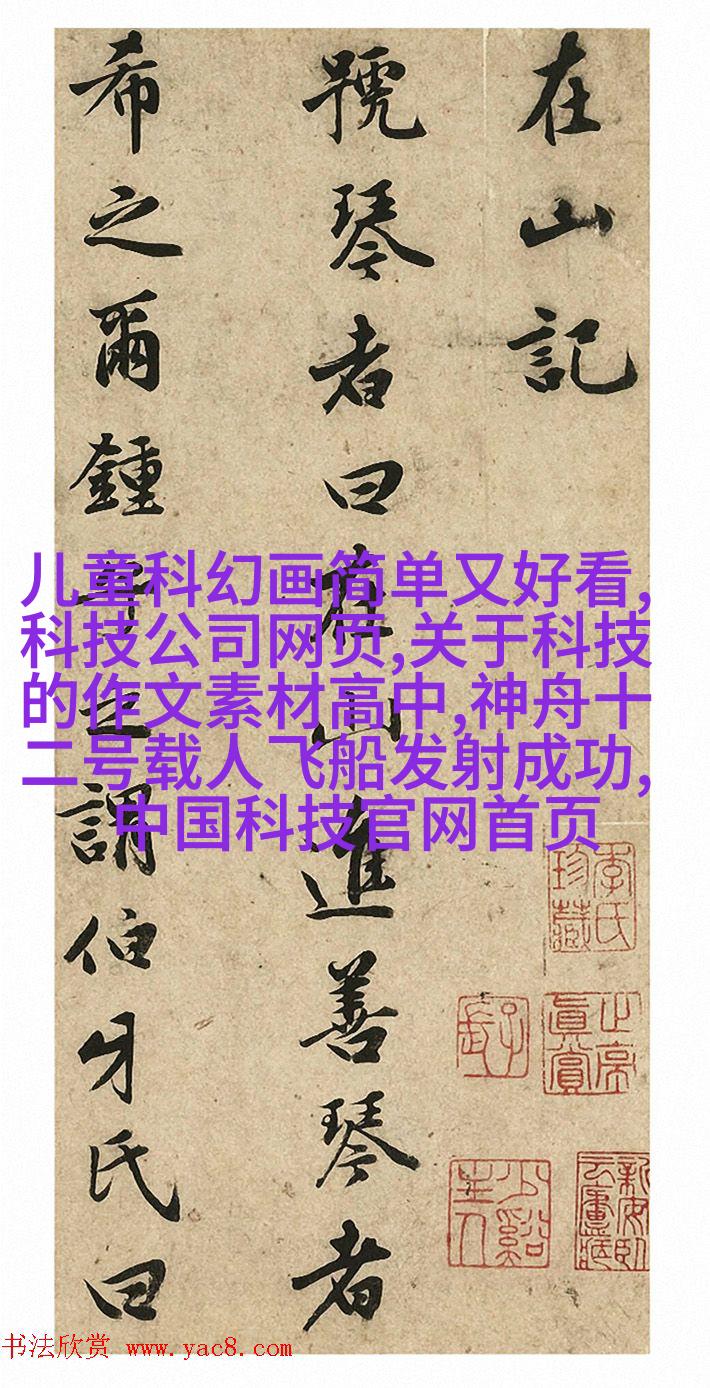 在山記
號琴者曰在山進善琴者
希之爾鍾之謂伯牙氏曰
儿童科幻画简单又好看,
科技公司网页,关于科技
的作文素材高中,神舟十
二号载人飞船发射成功,
中国科技官网首页
季氏珍藏
止亭真賞
少谿主人
书法欣赏 www.yac8.com